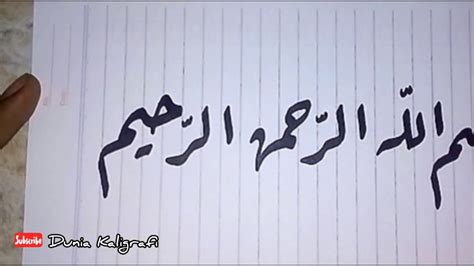 سم اللّه الرّحمن الرّحيم
Subscribe Dunia Kaligrafi